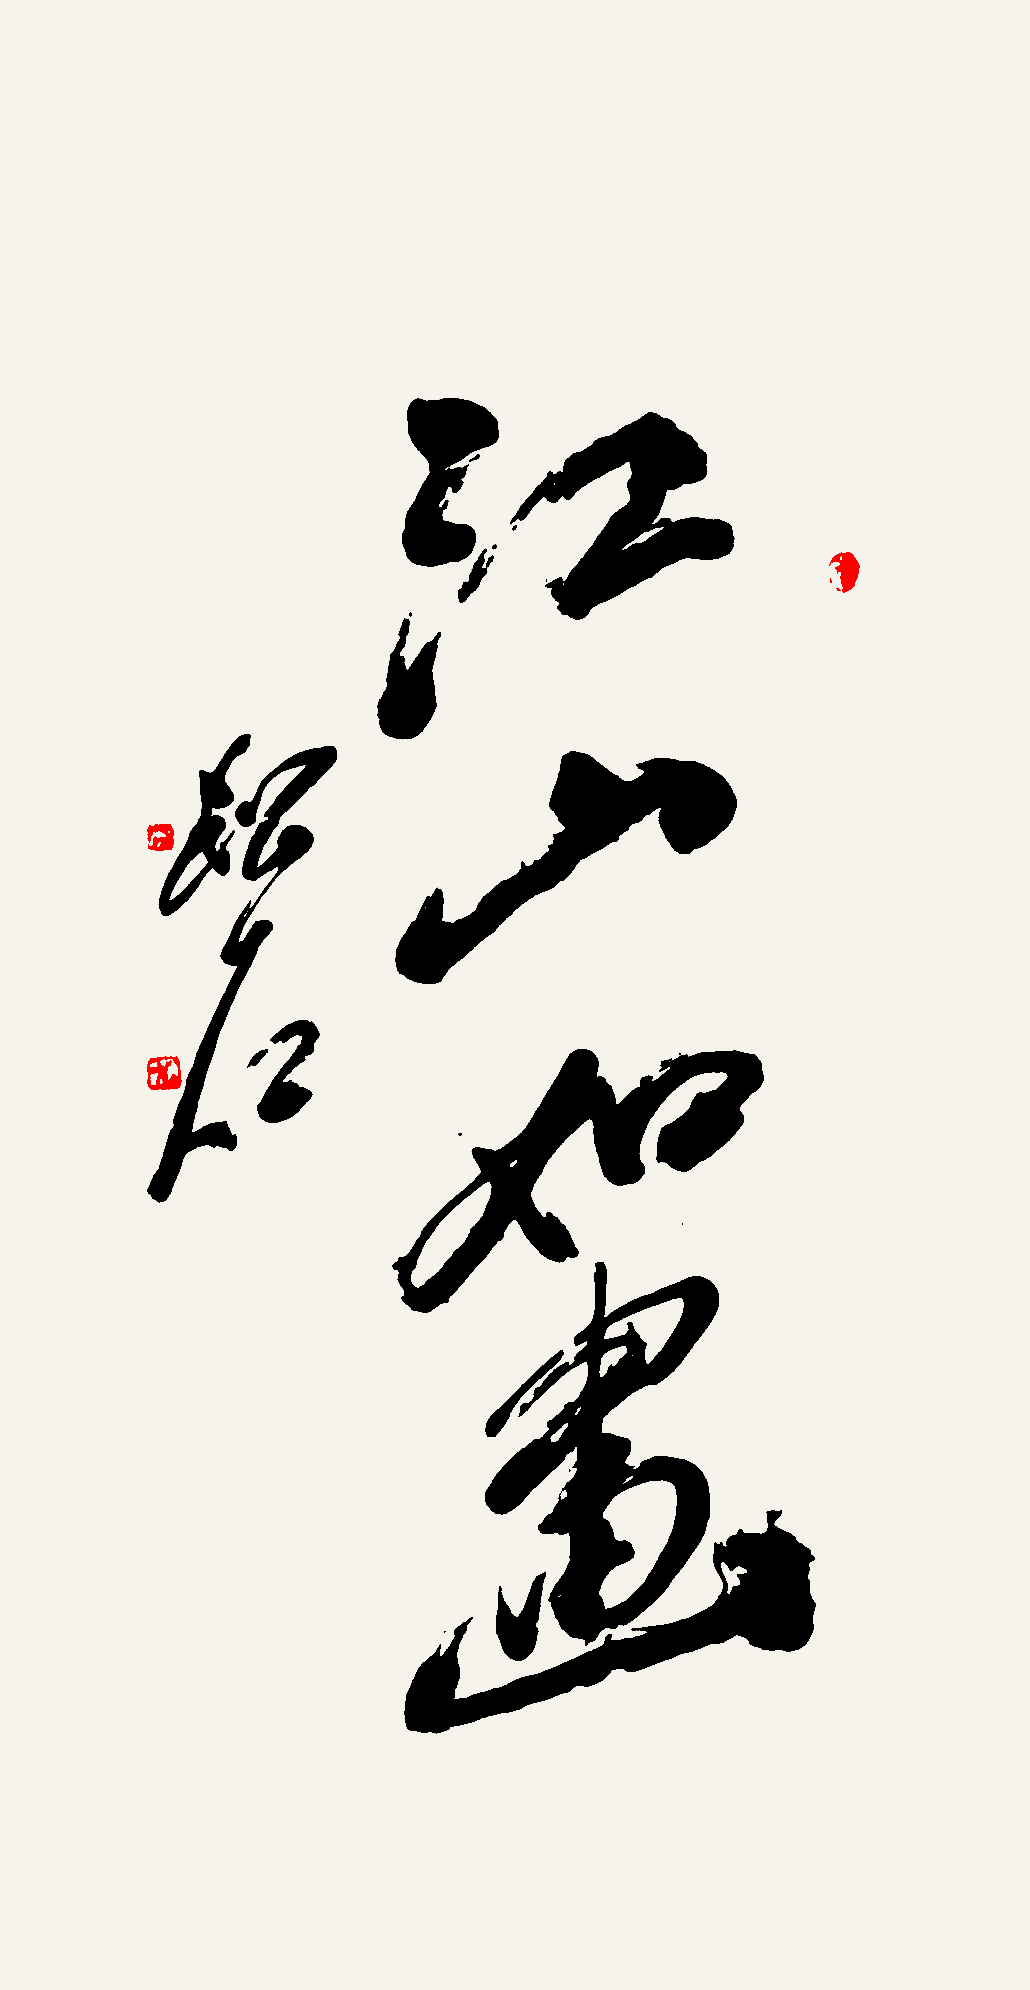 江山如畫